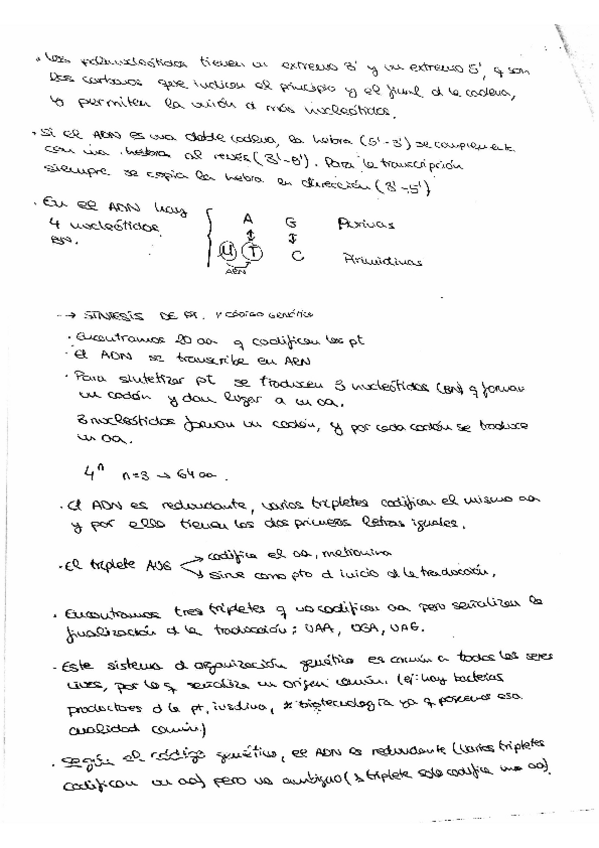 · Los polinucleótidos tienen un extremo 3' y un extremo 5', q son
los carbonos que indican el principio y el final d la cadena,
y permiten la unión d más nucleótidos.
· Si el ADN es una doble cadena, la hebra (5'-3') se complementa
con una hebra al revés (3'-5'). Para la transcripción
siempre se copia la hebra en dirección (3'-5')
· En el ADN hay
4 nucleótidos
BN.
A G Purinas
U T C Pirimidinas
ARN
→ SÍNTESIS DE PT. Y CÓDIGO GENÉTICO
· Encontramos 20 aa q codifican las pt
· El ADN se transcribe en ARN
· Para sintetizar pt se traducen 3 nucleótidos (BN) q forman
un codón y dan lugar a un aa.
3 nucleótidos forman un codón, y por cada codón se traduce
un aa.
4ⁿ n=3 → 64 aa.
· El ADN es redundante, varios tripletes codifican el mismo aa
y por ello tienen las dos primeras letras iguales.
· El triplete AUG → codifica el aa, metionina
→ sirve como pto d inicio d la traducción.
· Encontramos tres tripletes q no codifican aa pero señalizan la
finalización d la traducción: UAA, UGA, UAG.
· Este sistema d organización genético es común a todos los seres
vivos, por lo q señaliza un origen común. (ej: hay bacterias
productoras d la pt, insulina, * biotecnología ya q poseemos esa
cualidad común)
· Según el código genético, el ADN es redundante (varios tripletes
codifican un aa) pero no ambiguo (1 triplete solo codifica un aa).